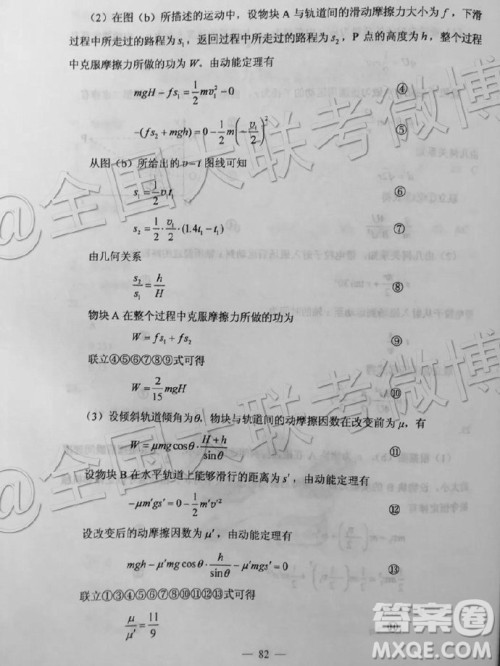 （2）在图（b）所描述的运动中，设物块 A 与轨道间的滑动摩擦力大小为 f，下滑
过程中所走过的路程为 s₁，返回过程中所走过的路程为 s₂，P 点的高度为 h，整个过程
中克服摩擦力所做的功为 W．由动能定理有
mgH − fs₁ = 1/2 mv₁² − 0 ④
−(fs₂ + mgh) = 0 − 1/2 m(−v₁/2)² ⑤
从图（b）所给出的 v−t 图线可知
s₁ = 1/2 v₁t₁ ⑥
s₂ = 1/2 · v₁/2 · (1.4t₁ − t₁) ⑦
由几何关系
s₂/s₁ = h/H ⑧
物块 A 在整个过程中克服摩擦力所做的功为
W = fs₁ + fs₂ ⑨
联立④⑤⑥⑦⑧⑨式可得
W = 2/15 mgH ⑩
（3）设倾斜轨道倾角为θ，物块与轨道间的动摩擦因数在改变前为 μ，有
W = μmg cosθ · (H+h)/sinθ ⑪
设物块 B 在水平轨道上能够滑行的距离为 s′，由动能定理有
−μm′gs′ = 0 − 1/2 m′v″² ⑫
设改变后的动摩擦因数为 μ′，由动能定理有
mgh − μ′mg cosθ · h/sinθ − μ′mgs′ = 0 ⑬
联立①③④⑤⑥⑦⑧⑩⑪⑫⑬式可得
μ/μ′ = 11/9
— 82 —
@全国大联考微博
@全国大联考微博
答案圈
MXQE.COM